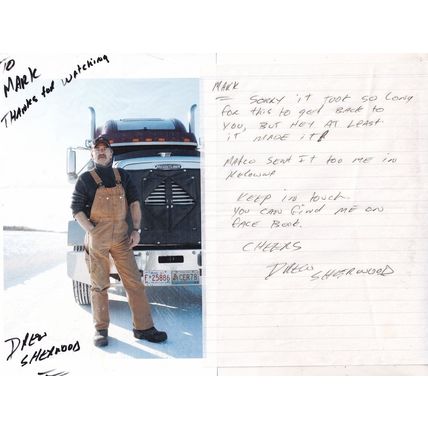 TO
MARK
THANKS for WATCHING
FREIGHTLINER
F-25886 CER78
DREW
SHERWOOD
MARK
SORRY iT TOOK SO LONG
FOR THIS TO get BACK TO
YOU, BUT HEY AT LEAST
iT MADE iT!
MARCO SENT IT TOO ME iN
KELOWNA
KEEP iN TOUCH.
YOU CAN FIND ME ON
FACE BOOK.
CHEERS
DREW
SHERWOOD